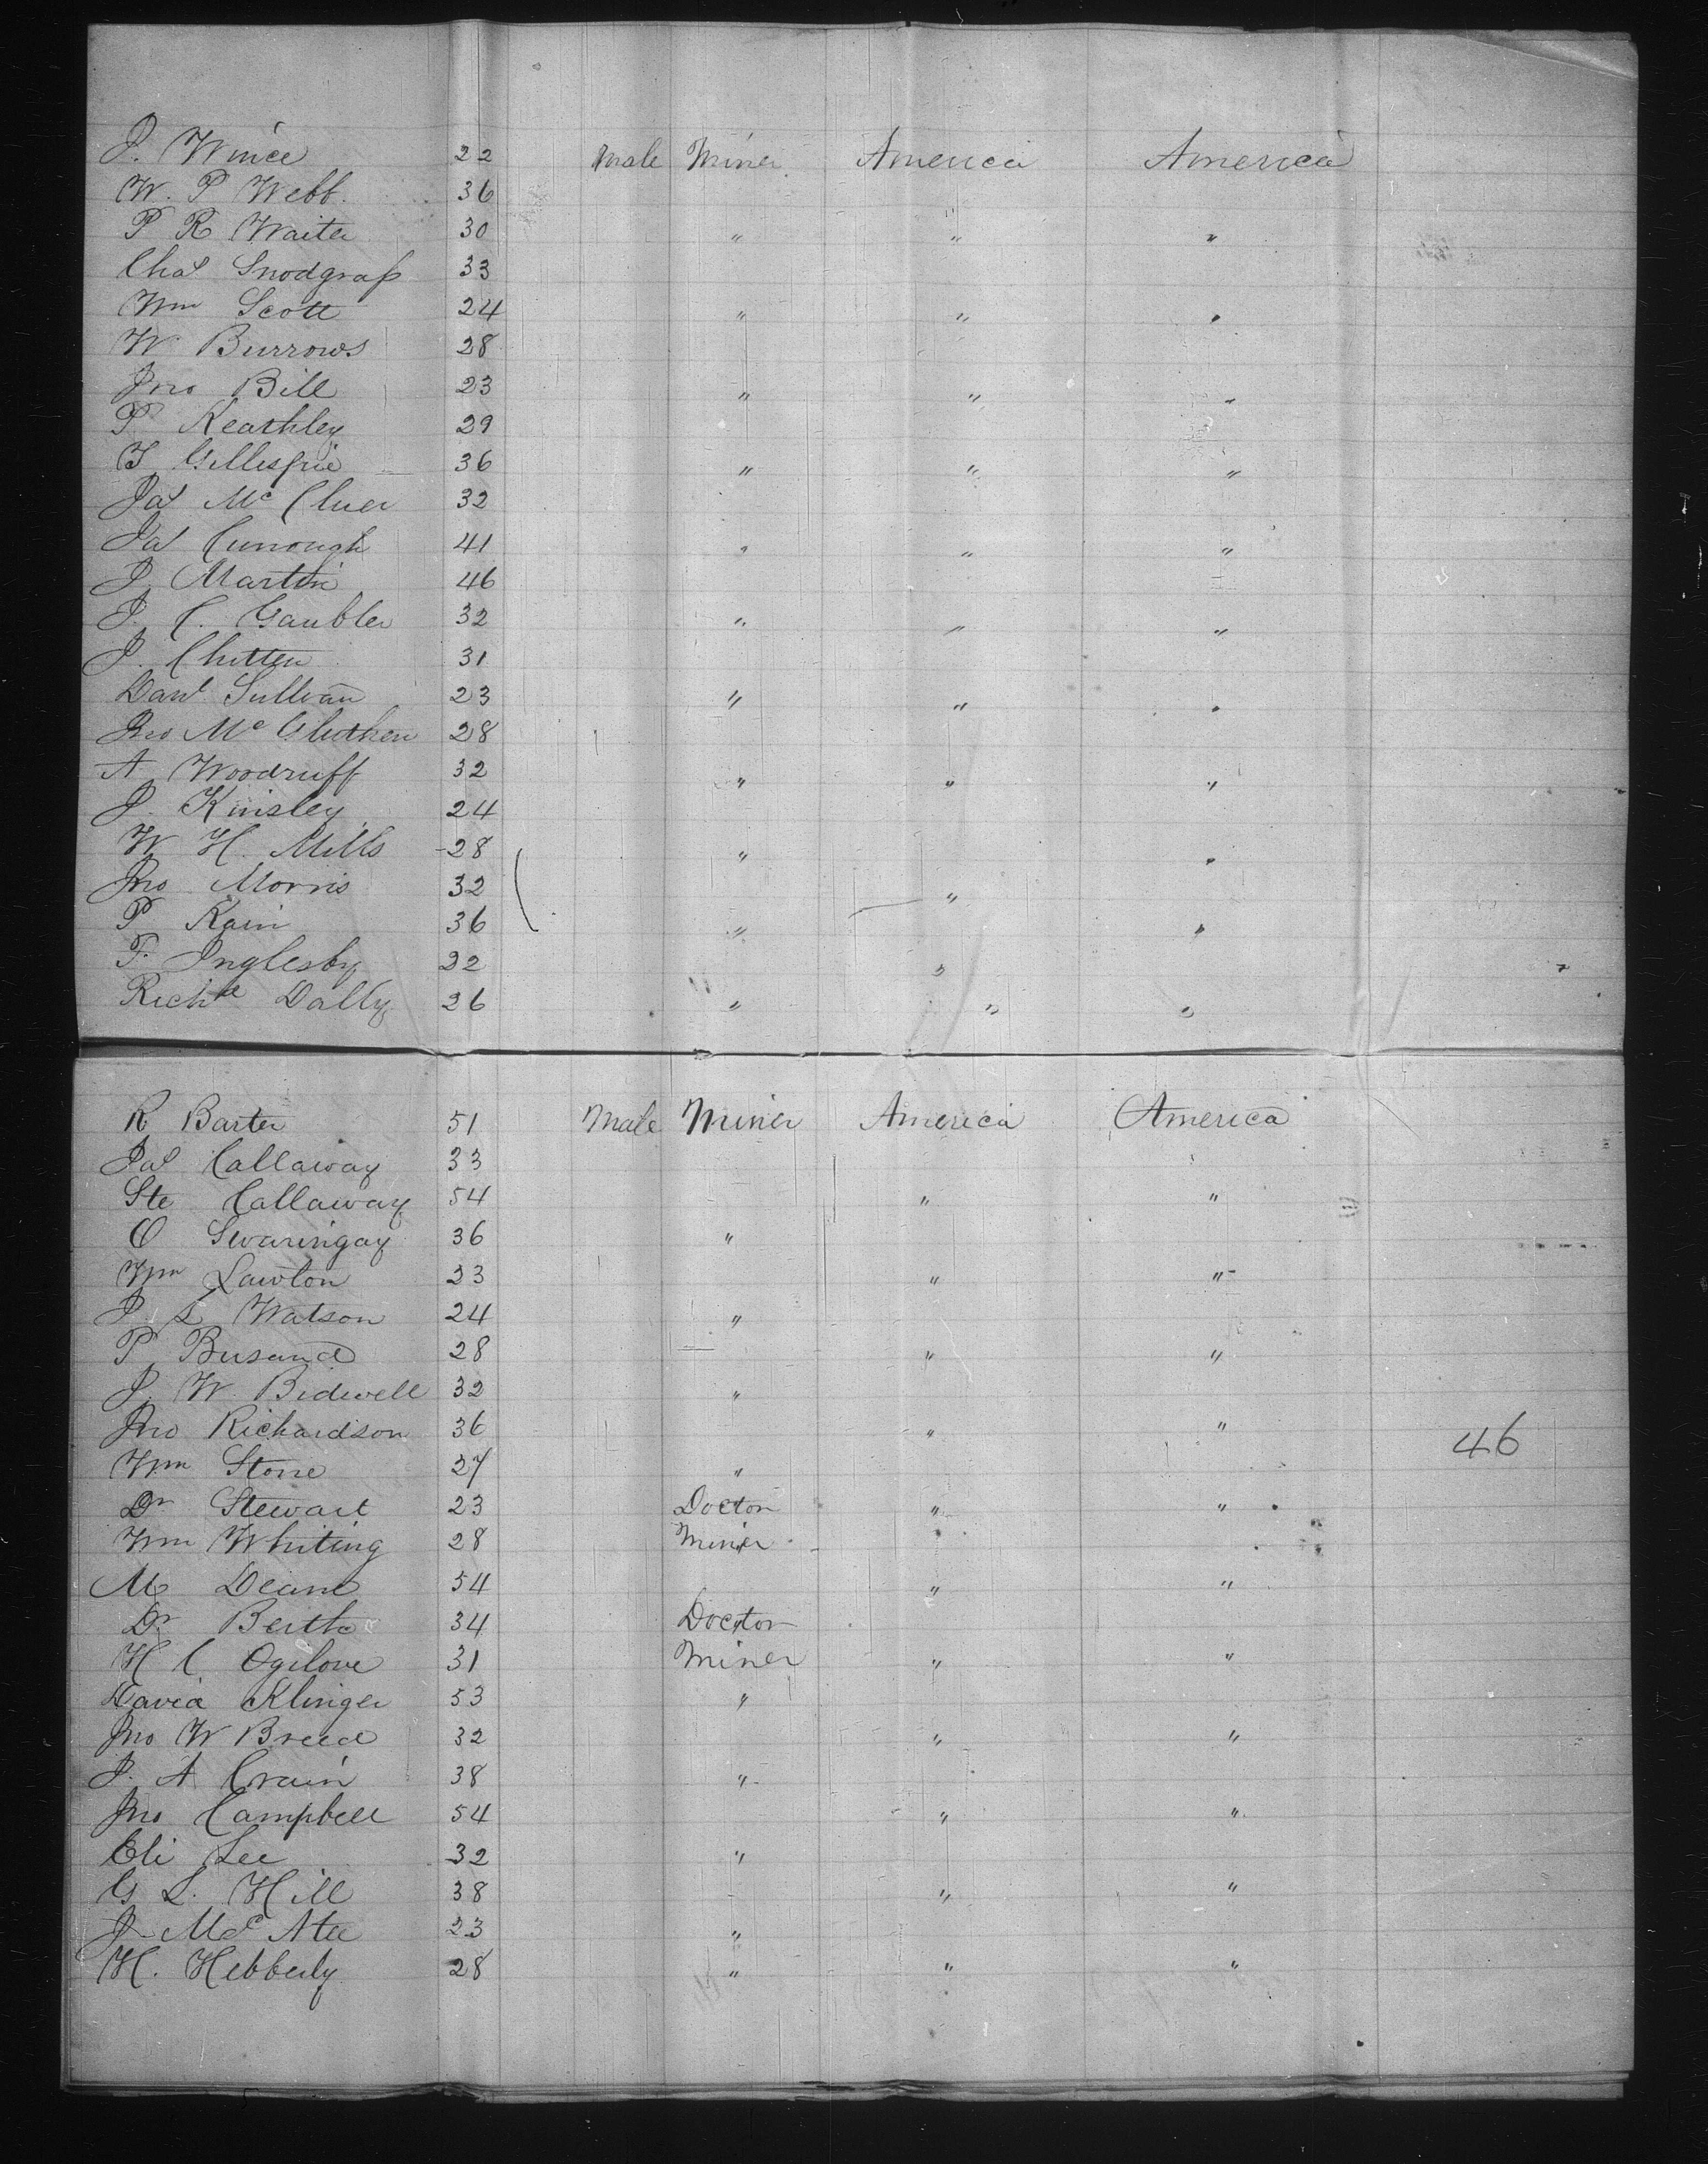 J. Wince 22 Male Miner America America
W. P Webb. 36
P R Waiter 30 " " "
Chas Snodgrass 33
Wm Scott 24 " " "
W Burrows 28
Jno Bill 23 " " "
P Keathley 29
T Gillespie 36 " " "
Jas McCluer 32
Jas Cunough 41 " " "
J Martin 46
J. C. Gaubler 32 " " "
J. Chitten 31
Danl Sullivan 23 " " "
Jno McGluthen 28
A Woodruff 32 " " "
J. Kinsley 24
W H. Mills 28 " "
Jno Morris 32 "
P Kain 36 " "
F. Inglesby 32 "
Richd Dally 26 " " "
R Barter 51 Male Miner America America
Jas Callaway 33
Ste Callaway 54 " "
O Swaringay 36 "
Wm Lawton 23 " "
J. L Watson 24 "
P Busand 28 " "
J. W. Bidwell 32 "
Jno Richardson 36 " "
46
Wm Stone 27 "
Dr Stewart 23 Doctor " "
Wm Whiting 28 Miner
M Deane 54 " "
Dr Berth 34 Doctor
H C Ogilove 31 Miner " "
David Klinger 53 "
Jno W Breed 32 " "
J. A Crain 38 "
Jno Campbell 54 " "
Eli Lee 32 "
G L. Hill 38 " "
J McAtee 23 "
H. Hebberly 28 " " "